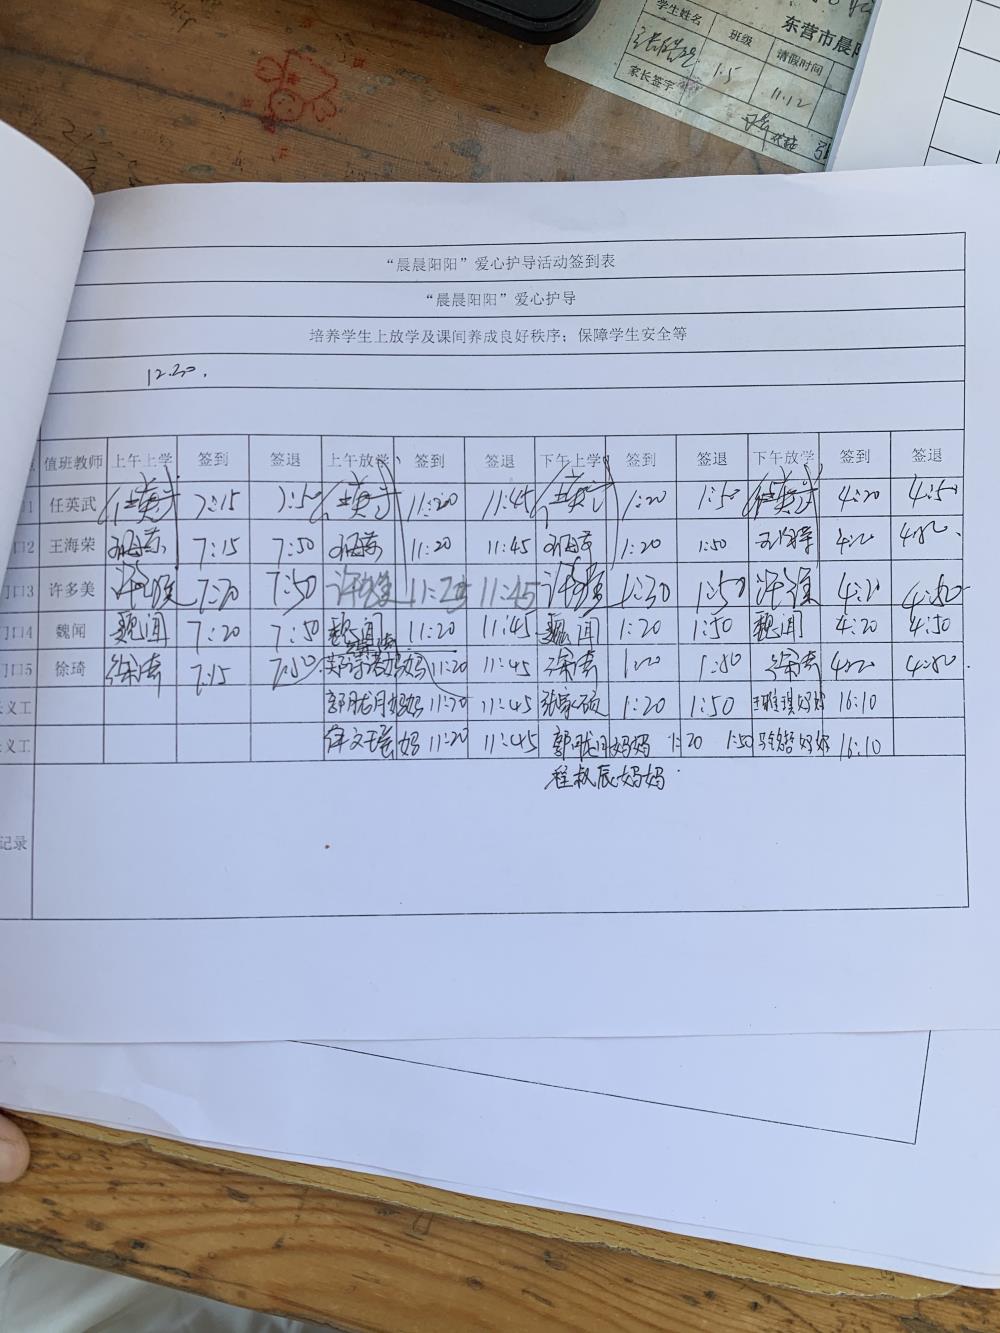 东营市晨
学生姓名 班级 请假时间
1.5 11.12
家长签字
“晨晨阳阳”爱心护导活动签到表
“晨晨阳阳”爱心护导
培养学生上放学及课间养成良好秩序；保障学生安全等
12.20.
值班教师 上午上学 签到 签退 上午放学 签到 签退 下午上学 签到 签退 下午放学 签到 签退
1 任英武 任英武 7:15 7:50 任英武 11:20 11:45 任英武 1:20 1:50 任英武 4:20 4:50
门口2 王海荣 7:15 7:50 11:20 11:45 1:20 1:50 4:20 4:50.
门口3 许多美 7:20 7:50 11:20 11:45 1:30 1:50 4:20 4:50
门口4 魏闻 魏闻 7:20 7:50 魏闻 11:20 11:45 魏闻 1:20 1:50 魏闻 4:20 4:50
门口5 徐琦 徐琦 7:15 7:50 妈妈 11:20 11:45 徐琦 1:20 1:50 徐琦 4:20 4:50.
义工 郭胧月妈妈 11:20 11:45 张家硕 1:20 1:50 王雅琪妈妈 16:10
义工 妈 11:20 11:45 郭胧月妈妈 1:20 1:50 妈妈 16:10
程叔辰妈妈.
记录